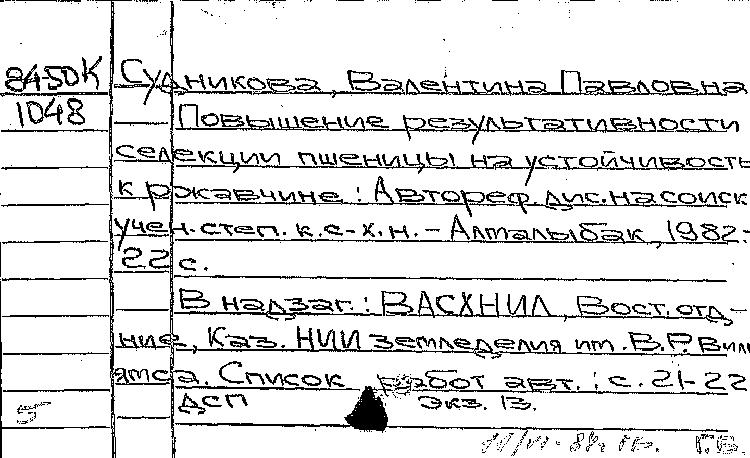 84-50К Судникова, Валентина Павловна
1048 Повышение результативности
селекции пшеницы на устойчивость
к ржавчине : Автореф. дис. на соиск.
учен. степ. к. с-х. н. – Алмалыбак, 1982.-
22 с.
В надзаг.: ВАСХНИЛ, Вост. отд-
ние, Каз. НИИ земледелия им. В.Р. Виль
ямса. Список работ авт. : с. 21-22
ДСП экз. 13.
5
Г.В.